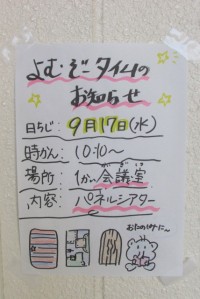 よむ・ぞータイムの
お知らせ
日にち：9月17日(水)
時かん：10:10～
場所：1かい会議室
内容：パネルシアター
おたのしみに～